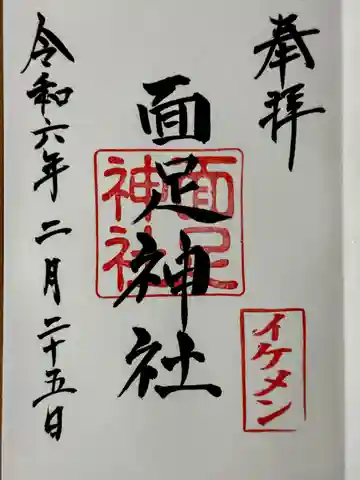 奉拝
面足神社
面足
神社
イケメン
令和六年二月二十五日